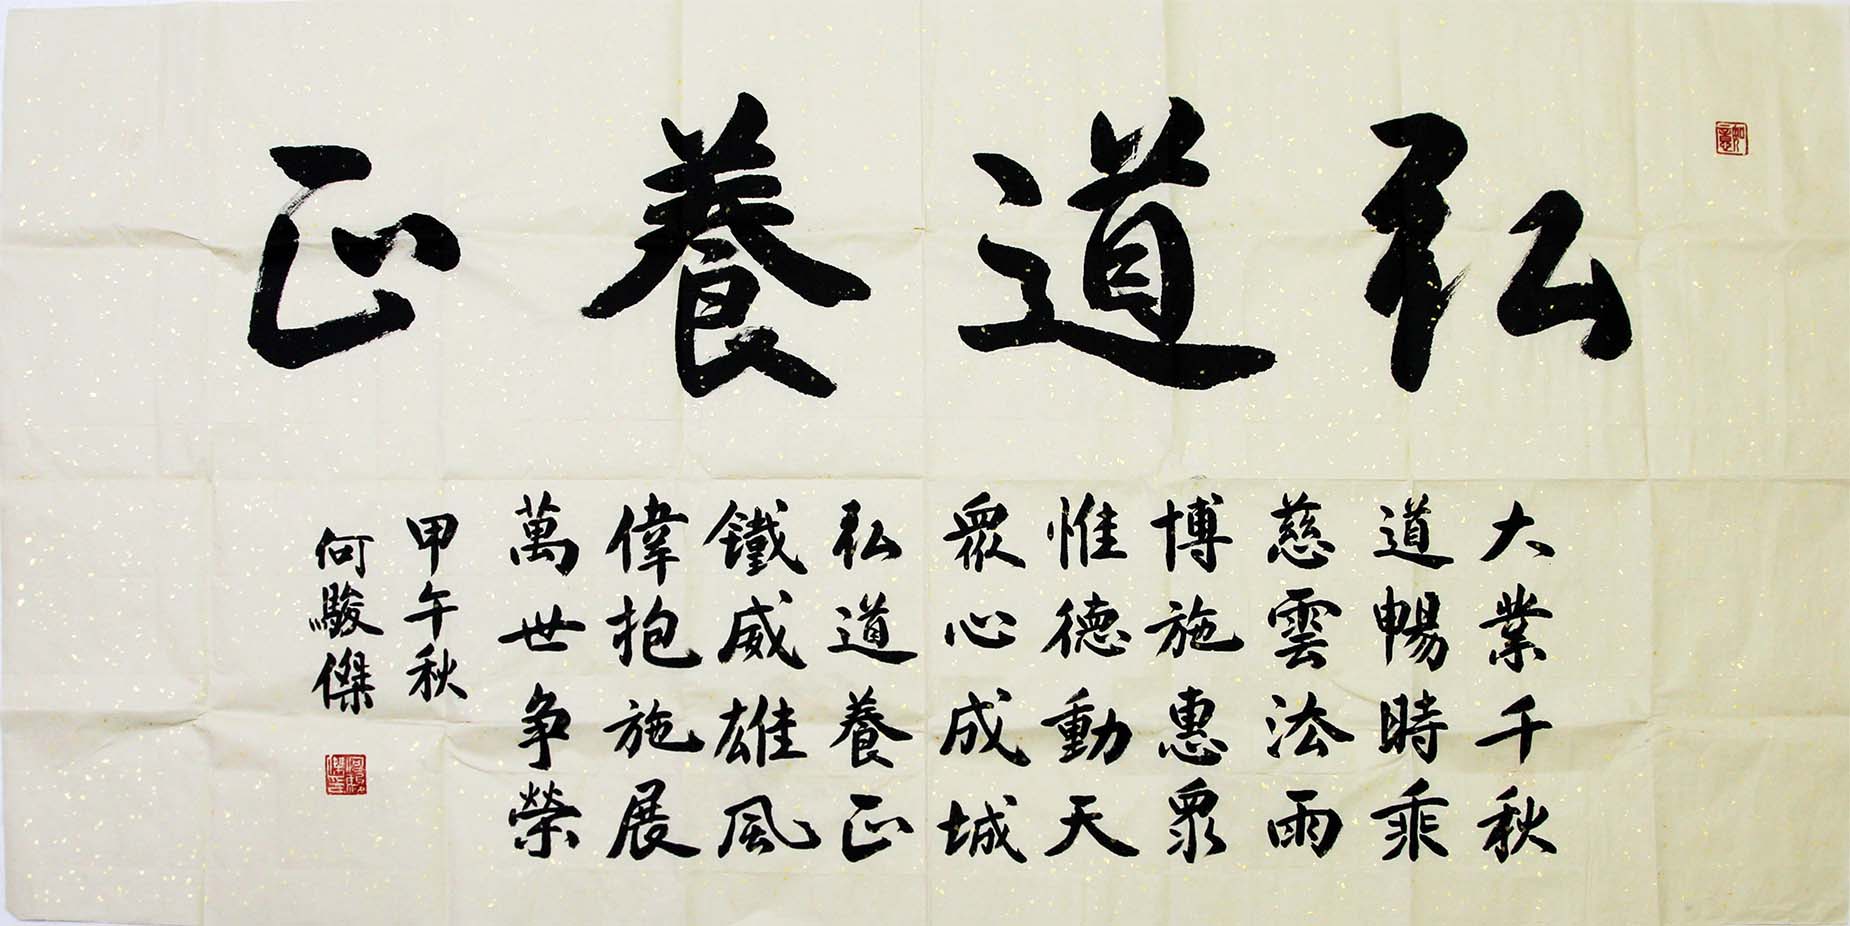 弘道養正
大業千秋
道暢時乘
慈雲法雨
博施惠眾
惟德動天
眾心成城
弘道養正
鐵威雄風
偉抱施展
萬世争榮
甲午秋
何駿傑
如意